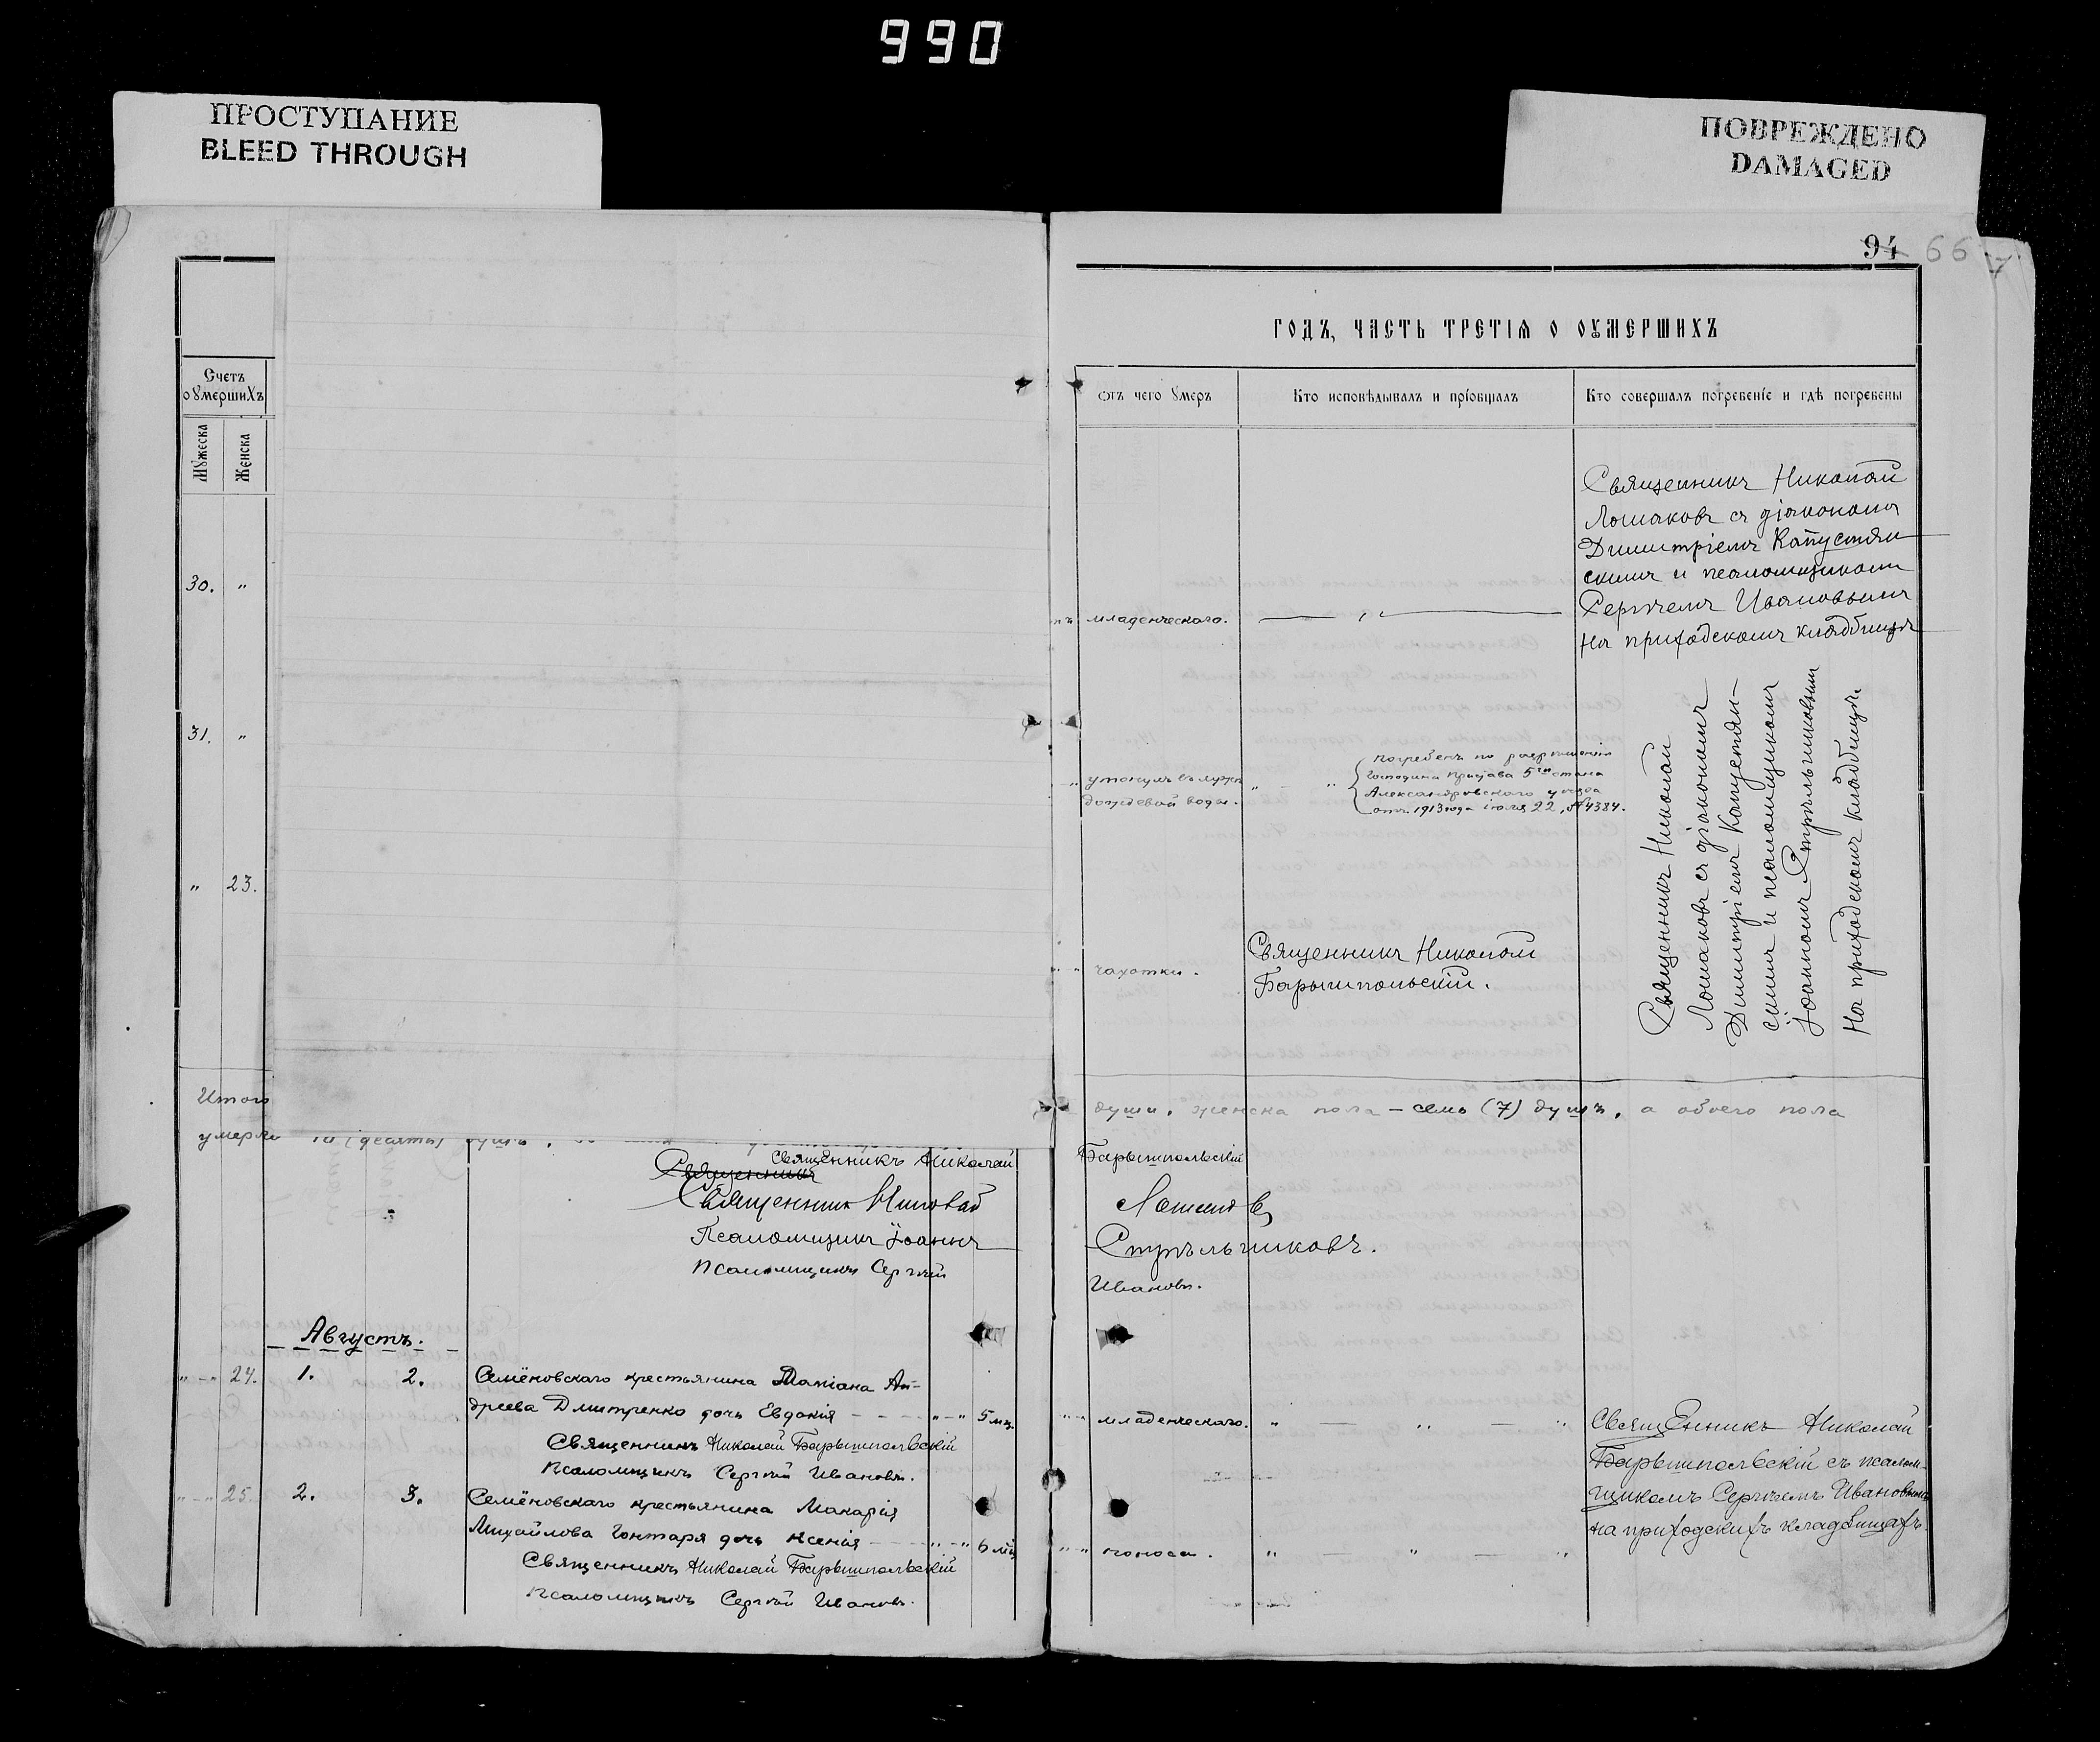 990
ПРОСТУПАНИЕ
BLEED THROUGH
ПОВРЕЖДЕНО
DAMAGED
94 66
Счетъ
оумершихъ
Мужеска
Женска
30. "
31. "
" 23.
Итого
умерло 10 (десять) душъ,
Священникъ Николай
Священникъ
Священник Николай
Псаломщикъ Іоаннъ
Псаломщикъ Сергѣй
Августъ.
" - " 24. 1. 2. Семёновскаго крестьянина Ан-
дреева Дмитренко дочь Евдокія " - " 5 мц.
Священникъ Николай Барышпольскій
Псаломщикъ Сергѣй Ивановъ.
" - " 25. 2. 3. Семёновскаго крестьянина Макарія
Михайлова Гонтаря дочь Ксенія " - " 6 мц
Священникъ Николай Барышпольскій
Псаломщикъ Сергѣй Ивановъ.
годъ, часть третія о оумершихъ
отъ чего умеръ
Кто исповѣдывалъ и пріобщалъ
Кто совершалъ погребеніе и гдѣ погребены
младенческаго.
Священникъ Николай
Ломаковъ съ діакономъ
Димитріемъ Капустян
скимъ и псаломщикомъ
Сергѣемъ Ивановымъ
на приходскомъ кладбищѣ
утонулъ въ лужѣ
дождевой воды.
погребенъ по разрѣшенію
Господина Пристава 5го стана
Александровскаго уѣзда
отъ 1913 года іюля 22, № 4384.
чахотки.
Священникъ Николай
Барышпольскій.
Священникъ Николай
Ломаковъ съ діакономъ
Димитріемъ Капустян-
скимъ и псаломщикомъ
Іоанномъ Стрѣльниковымъ
на приходскомъ кладбищѣ.
души, женска пола - семь (7) душъ, а обоего пола
Барышпольскій
Ломаковъ
Стрѣльниковъ.
Ивановъ.
" - " младенческаго. " — " — "
Священникъ Николай
Барышпольскій съ псалом-
щикомъ Сергѣемъ Ивановымъ
на приходскихъ кладбищахъ.
" - " поноса. " — " — "